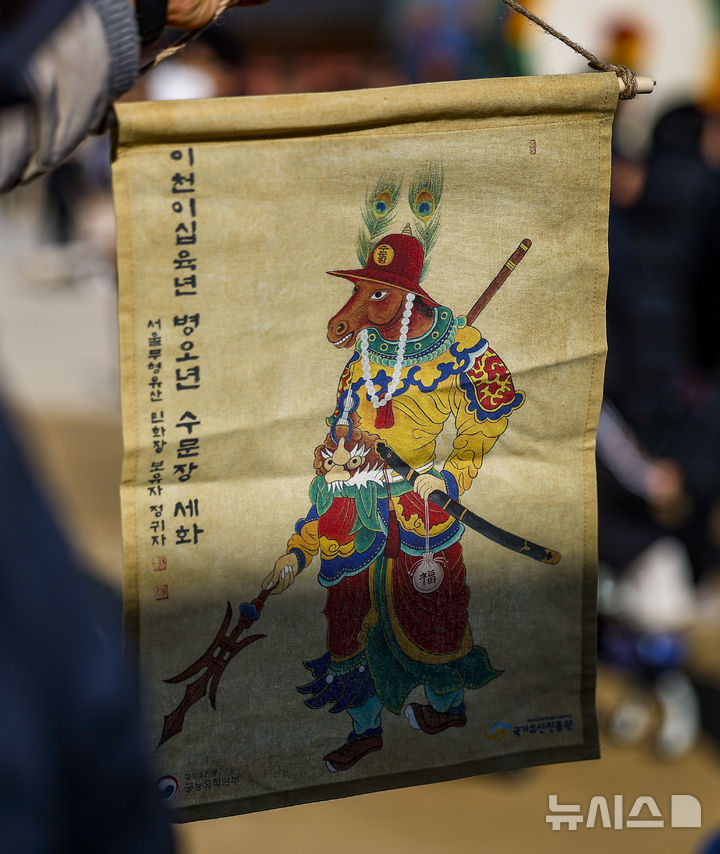 이천이십육년 병오년 수문장 세화
서울무형유산 민화장 보유자 정귀자
福
국가유산청
궁능유적본부
국가유산진흥원
뉴시스